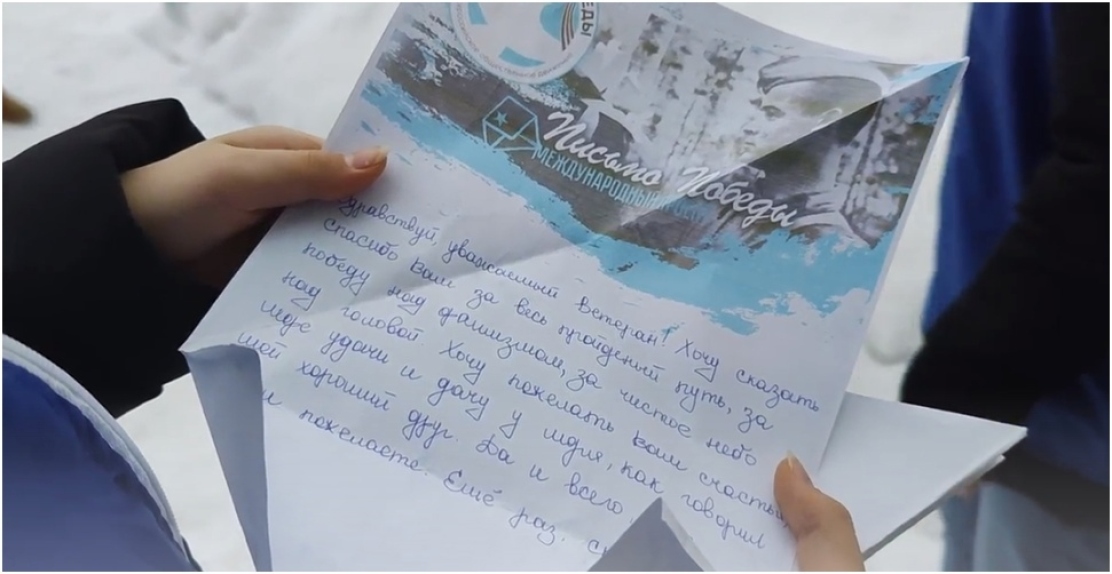 ЕДЫ
Письмо Победы
МЕЖДУНАРОДНЫЙ
дравствуй, уважаемый Ветеран! Хочу сказать
спасибо Вам за весь пройденый путь, за
победу над фашизмом, за чистое небо
над головой. Хочу пожелать Вам счастья,
море удачи и дачу у моря, как говорил
мой хороший друг. Да и всего
и пожелаете. Ещё раз, с